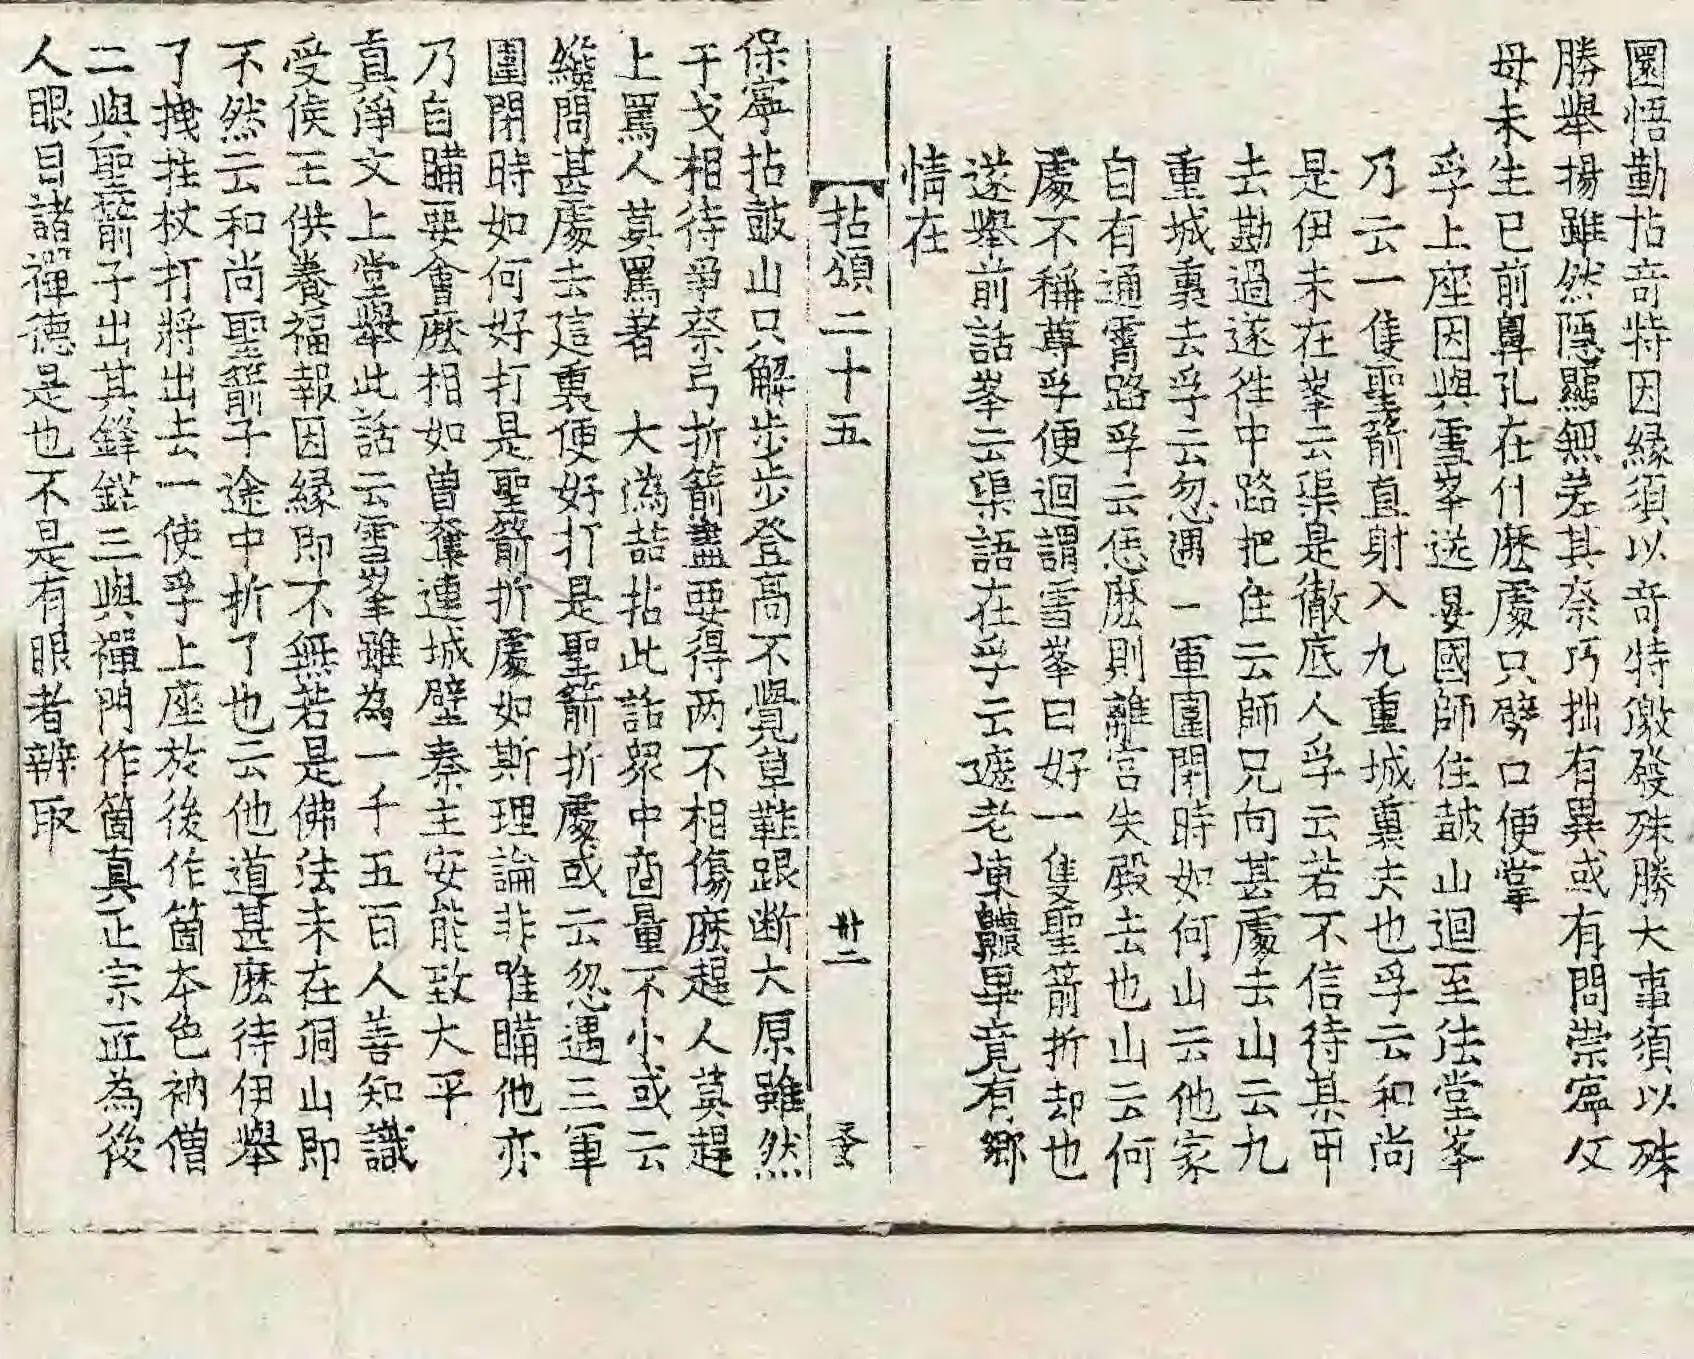 圜悟勤拈竒特因縁須以竒特激發殊勝大事須以殊
勝舉揚雖然隱顯無差其柰巧拙有異或有問崇寧父
母未生已前鼻孔在什麽處只劈口便掌
孚上座因與雪峯送晏國師住鼓山迴至法堂峯
乃云一隻聖箭直射入九重城裏去也孚云和尚
是伊未在峯云渠是徹底人孚云若不信待某甲
去勘過遂徃中路把住云師兄向甚處去山云九
重城裏去孚云忽遇一軍圍閉時如何山云他家
自有通霄路孚云恁麽則離宫失殿去也山云何
處不稱尊孚便迴謂雪峯曰好一隻聖箭折却也
遂舉前話峯云渠語在孚云遮老凍齈畢竟有鄉
情在
拈頌二十五 卄二
保寧拈鼓山只解步步登高不覺草鞋跟断大原雖然
干戈相待爭柰弓折箭盡要得两不相傷麽趕人莫趕
上罵人莫罵著 大溈喆拈此話衆中商量不小或云
纔問甚處去這裏便好打是聖箭折處或云忽遇三軍
圍閉時如何好打是聖箭折處如斯理論非唯瞞他亦
乃自瞞要會麽相如曽奪連城璧秦主安能致大平
真淨文上堂舉此話云雪峯雖為一千五百人善知識
受侯王供養福報因縁即不無若是佛法未在洞山即
不然云和尚聖箭子途中折了也云他道甚麽待伊舉
了拽拄杖打將出去一使孚上座於後作箇本色衲僧
二與聖箭子出其鋒鋩三與禪門作箇真正宗匠為後
人眼目諸禪德是也不是有眼者辨取